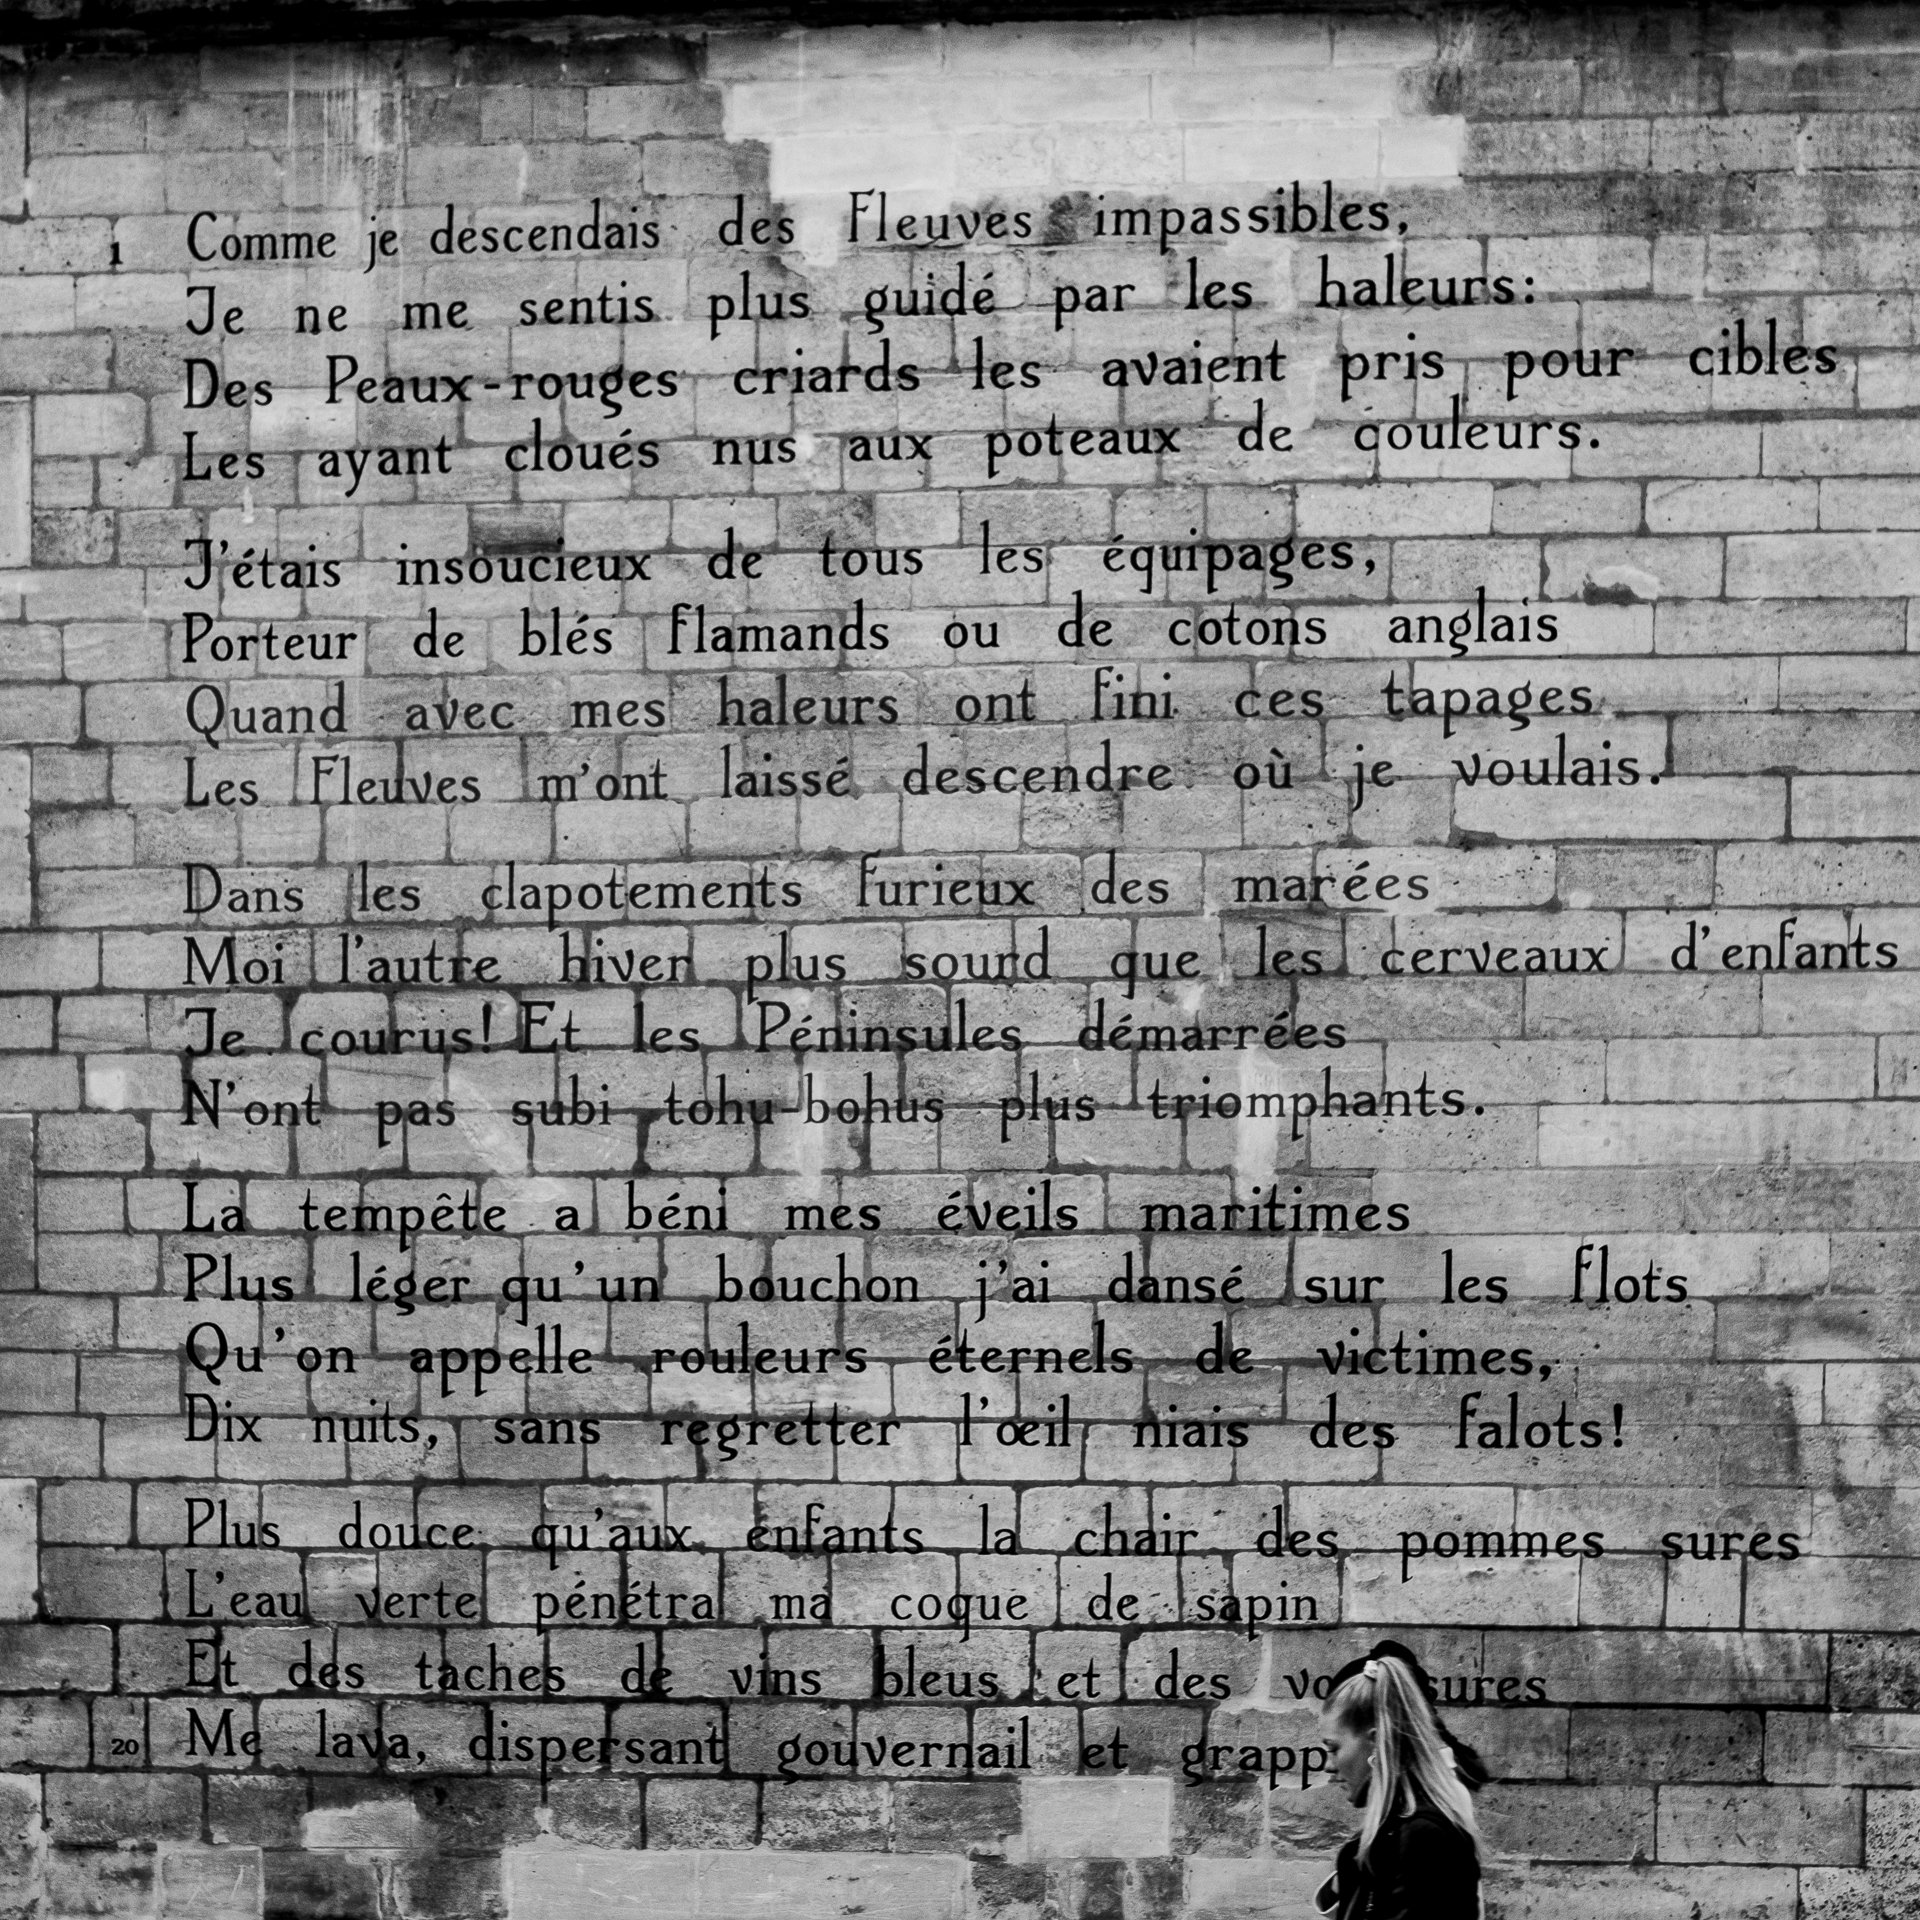 1 Comme je descendais des Fleuves impassibles,
Je ne me sentis plus guidé par les haleurs:
Des Peaux-rouges criards les avaient pris pour cibles
Les ayant cloués nus aux poteaux de couleurs.
J'étais insoucieux de tous les équipages,
Porteur de blés flamands ou de cotons anglais
Quand avec mes haleurs ont fini ces tapages
Les Fleuves m'ont laissé descendre où je voulais.
Dans les clapotements furieux des marées
Moi l'autre hiver plus sourd que les cerveaux d'enfants
Je courus! Et les Péninsules démarrées
N'ont pas subi tohu-bohus plus triomphants.
La tempête a béni mes éveils maritimes
Plus léger qu'un bouchon j'ai dansé sur les flots
Qu'on appelle rouleurs éternels de victimes,
Dix nuits, sans regretter l'œil niais des falots!
Plus douce qu'aux enfants la chair des pommes sures
L'eau verte pénétra ma coque de sapin
Et des taches de vins bleus et des
20 Me lava, dispersant gouvernail et